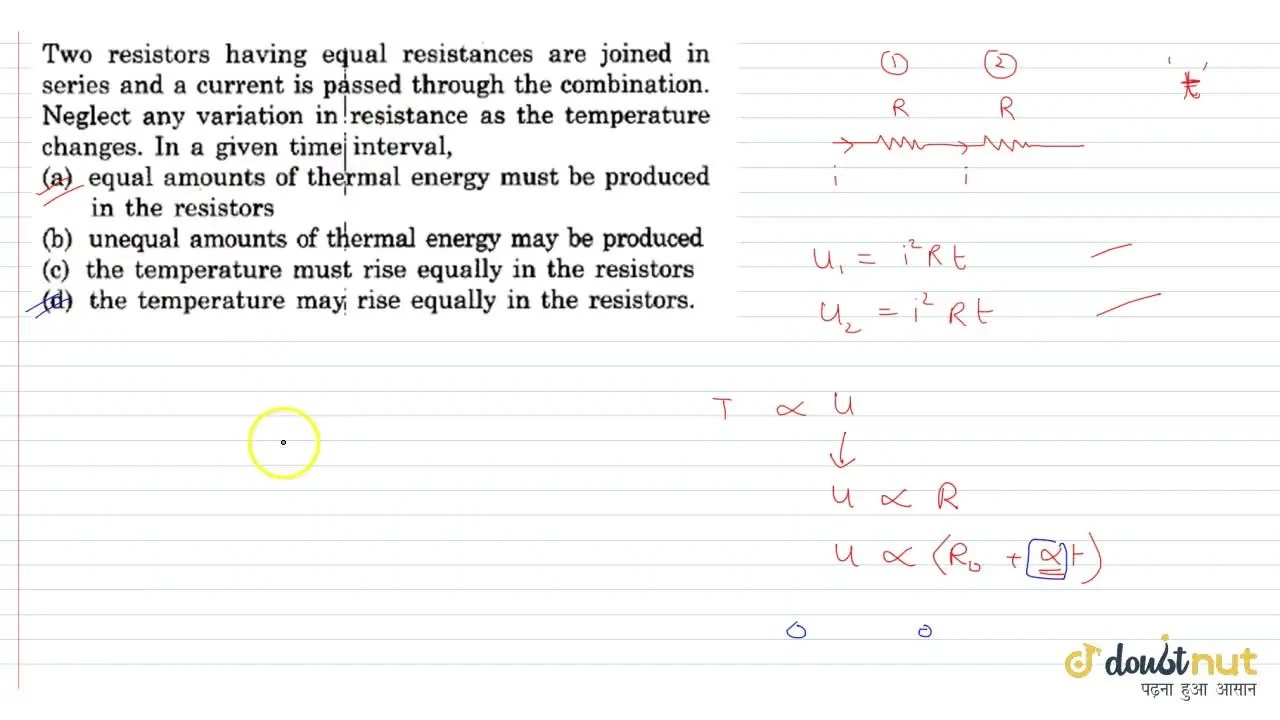 Two resistors having equal resistances are joined in
series and a current is passed through the combination.
Neglect any variation in resistance as the temperature
changes. In a given time interval,
(a) equal amounts of thermal energy must be produced
in the resistors
(b) unequal amounts of thermal energy may be produced
(c) the temperature must rise equally in the resistors
(d) the temperature may rise equally in the resistors.
① ②
R R
i i
t
U₁ = i² R t
U₂ = i² R t
T ∝ U
↓
U ∝ R
U ∝ (R₀ + αt)
doubtnut
पढ़ना हुआ आसान